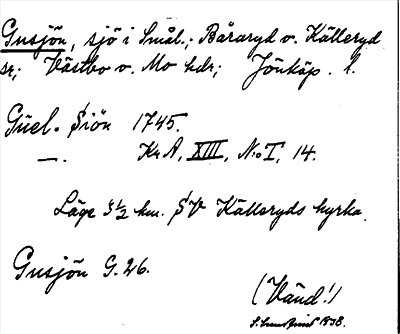 Gusjön, sjö i Smål.; Båraryd o. Källeryd
sr; Västbo o. Mo hdr; Jönköp. l.
Güel. Siön 1745.
—. Kr A, XIII, N:o I, 14.
Läge 3 1/2 km. SV Källeryds kyrka.
Gusjön G. 26.
(Vänd!)
1938.